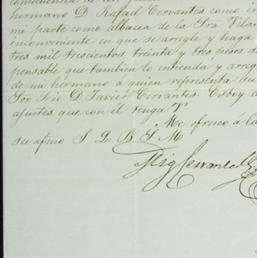 hermano D. Rafael Cervantes como i
me parte como albacea de la Sra Vilar
inconveniente en que se arregle y haga
tres mil trescientos treinta y tres pesos d
pensable que tambien lo entienda y arreg
de mi hermano a quien representa su
Sor Lic D. Javier Cervantes. Estoy d
ajustes que con él tenga V
Me ofrezco á la
su afmo S. Q. B. S. M.